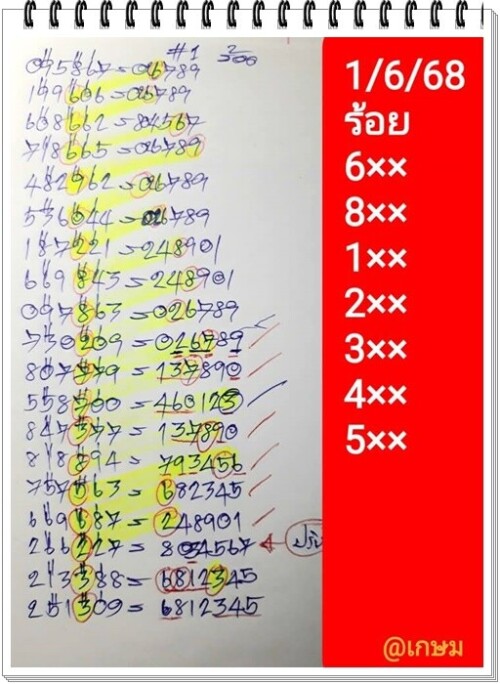 #1
095867=026789
199606=026789
608662=804567
718665=026789
482962=026789
536044=026789
187221=248901
669843=248901
097863=026789
730209=026789
807979=137890
558700=460123
847377=137890
818894=793456
757563=682345
669687=248901
266227=804567
213388=6812345
251309=6812345
1/6/68
ร้อย
6××
8××
1××
2××
3××
4××
5××
@เกษม